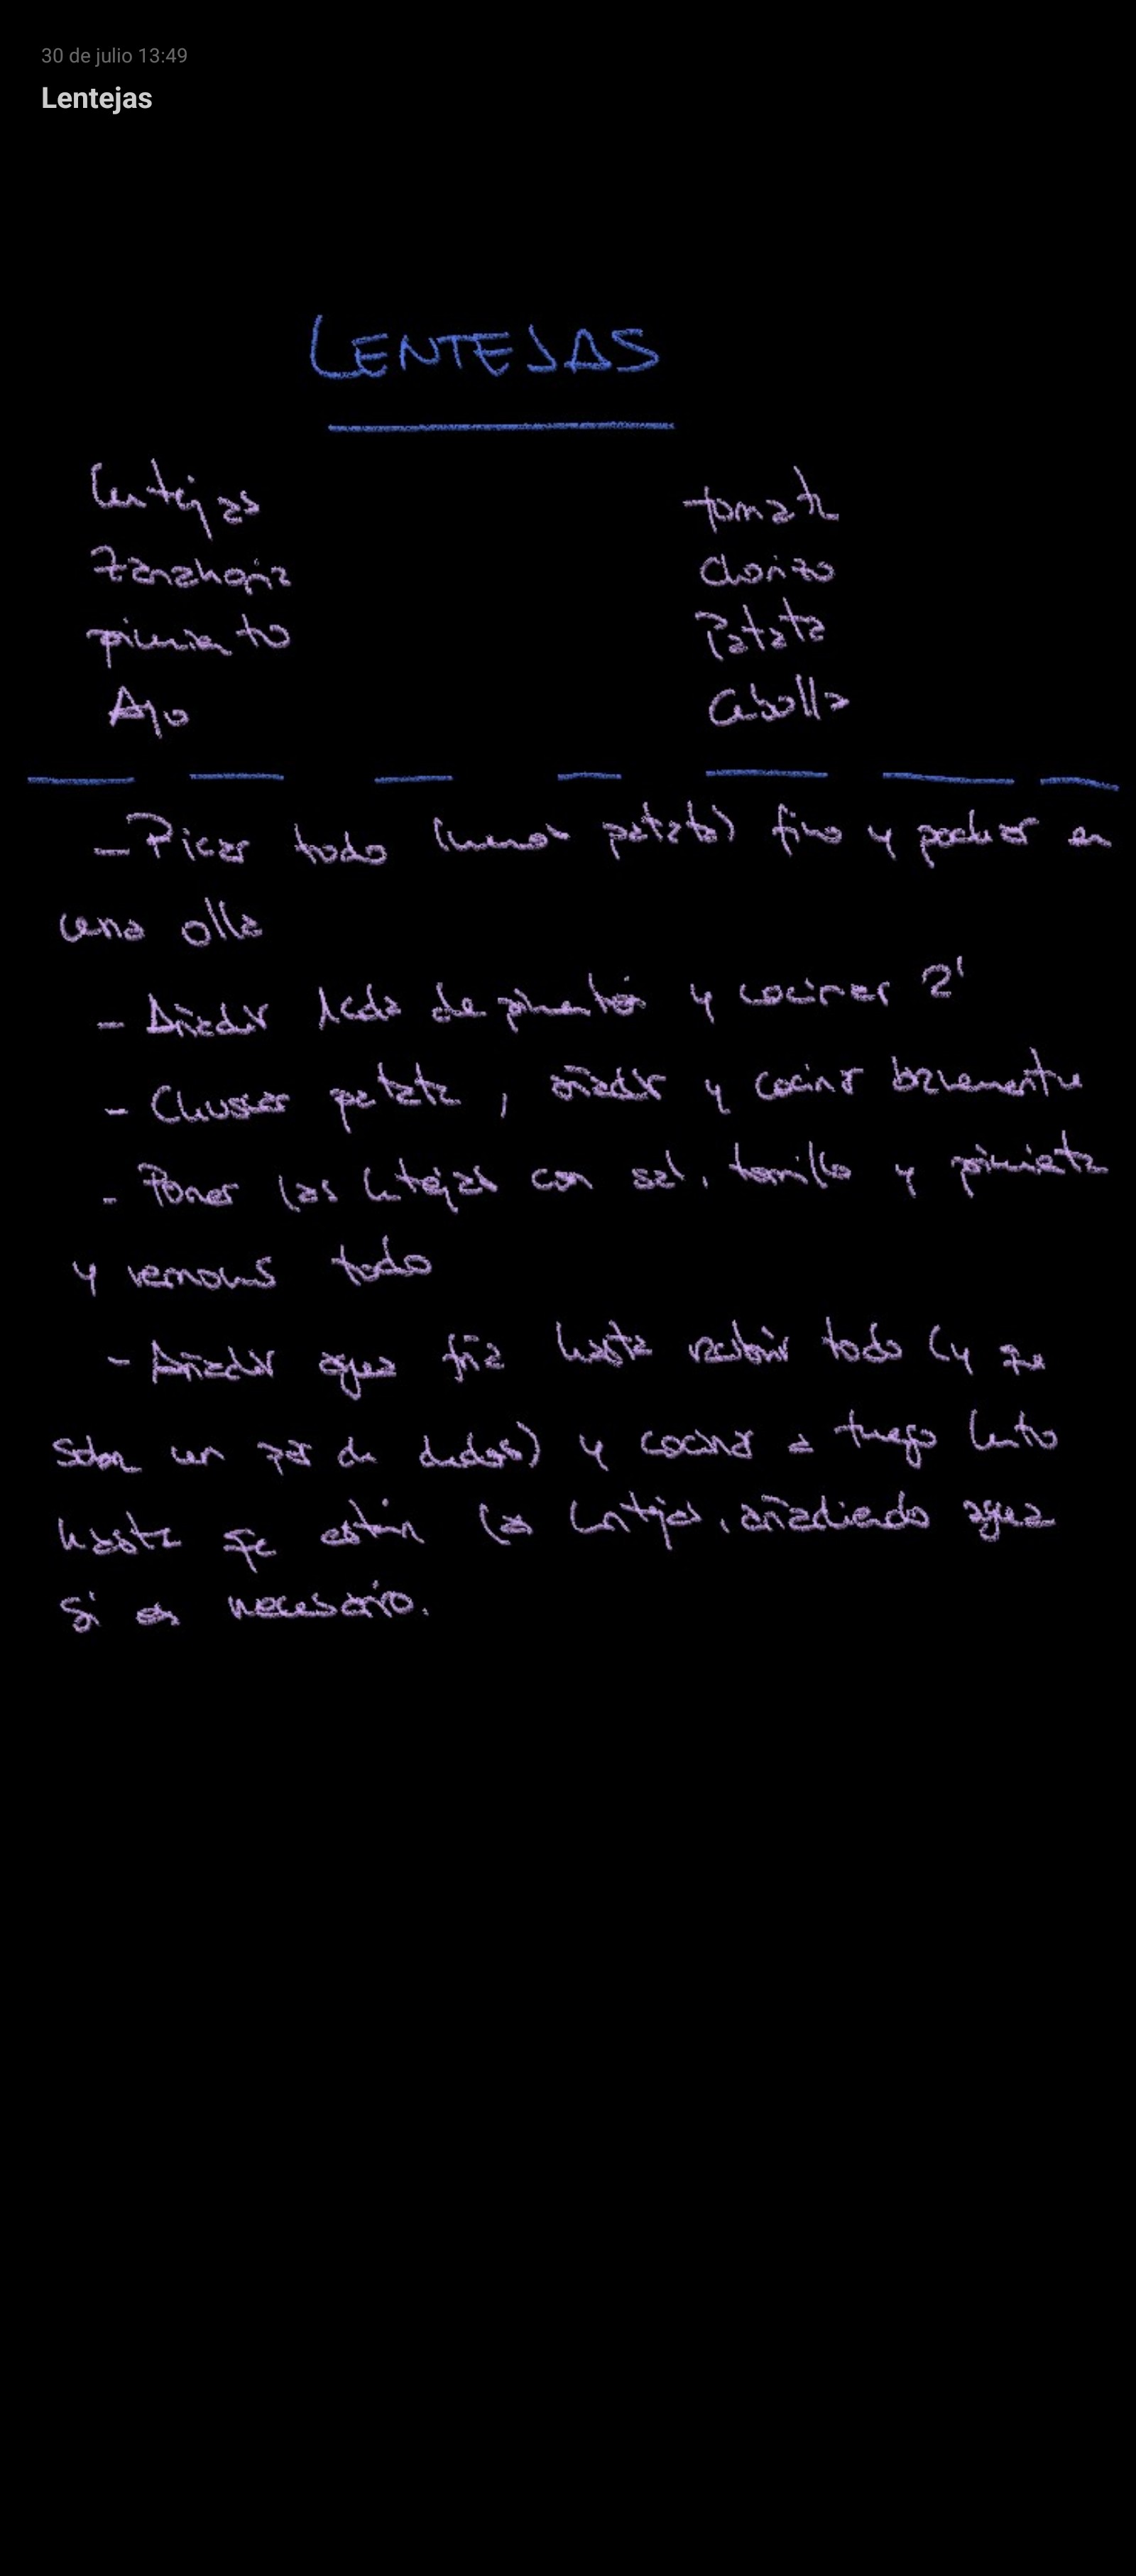 30 de julio 13:49
Lentejas
LENTEJAS
Lentejas tomate
Zanahoria Chorizo
pimiento Patata
Ajo Cebolla
- Picar todo (menos patata) fino y pochar en
una olla
- Añadir 1cda de pimentón y cocinar 2'
- Chuscar patata, añadir y cocinar brevemente
- Poner las lentejas con sal, tomillo y pimienta
y removemos todo
- Añadir agua fría hasta cubrir todo (y que
sobre un par de dedos) y cocinar a fuego lento
hasta que estén las lentejas, añadiendo agua
si es necesario.